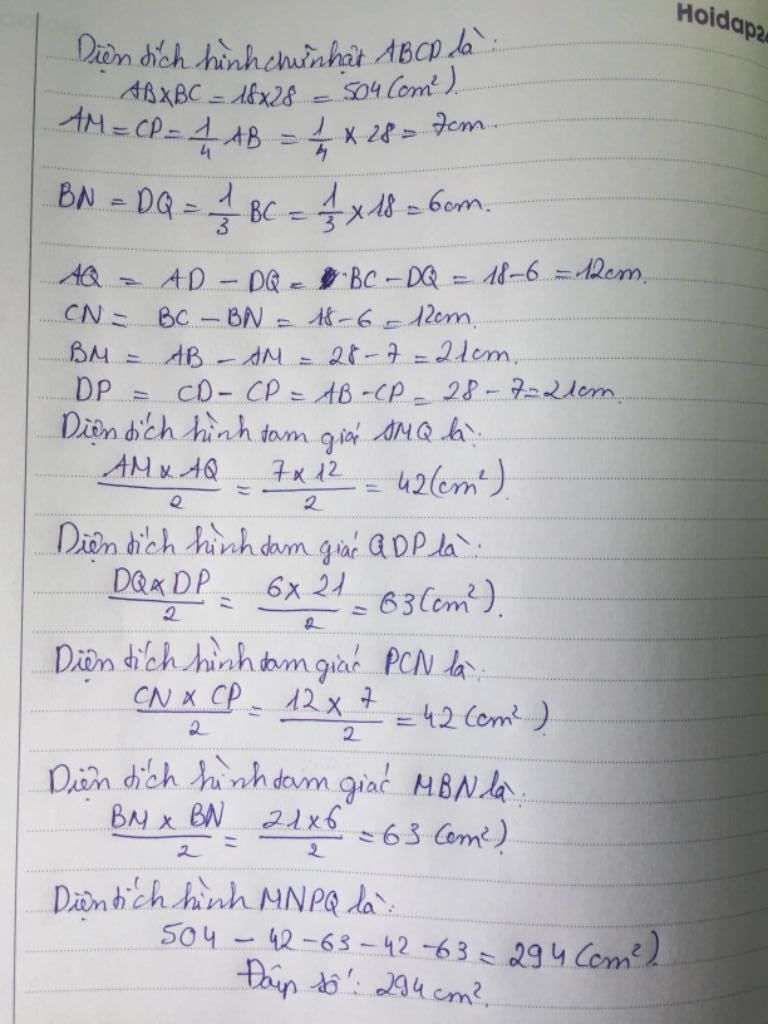 Hoidap24
Diện tích hình chữ nhật ABCD là:
AB x BC = 18 x 28 = 504 (cm²).
AM = CP = 1/4 AB = 1/4 x 28 = 7cm.
BN = DQ = 1/3 BC = 1/3 x 18 = 6cm.
AQ = AD - DQ = BC - DQ = 18 - 6 = 12cm.
CN = BC - BN = 18 - 6 = 12cm.
BM = AB - AM = 28 - 7 = 21cm.
DP = CD - CP = AB - CP = 28 - 7 = 21cm.
Diện tích hình tam giác AMQ là:
AM x AQ / 2 = 7 x 12 / 2 = 42 (cm²).
Diện tích hình tam giác QDP là:
DQ x DP / 2 = 6 x 21 / 2 = 63 (cm²).
Diện tích hình tam giác PCN là:
CN x CP / 2 = 12 x 7 / 2 = 42 (cm²)
Diện tích hình tam giác MBN là:
BM x BN / 2 = 21 x 6 / 2 = 63 (cm²)
Diện tích hình MNPQ là:
504 - 42 - 63 - 42 - 63 = 294 (cm²)
Đáp số: 294 cm².